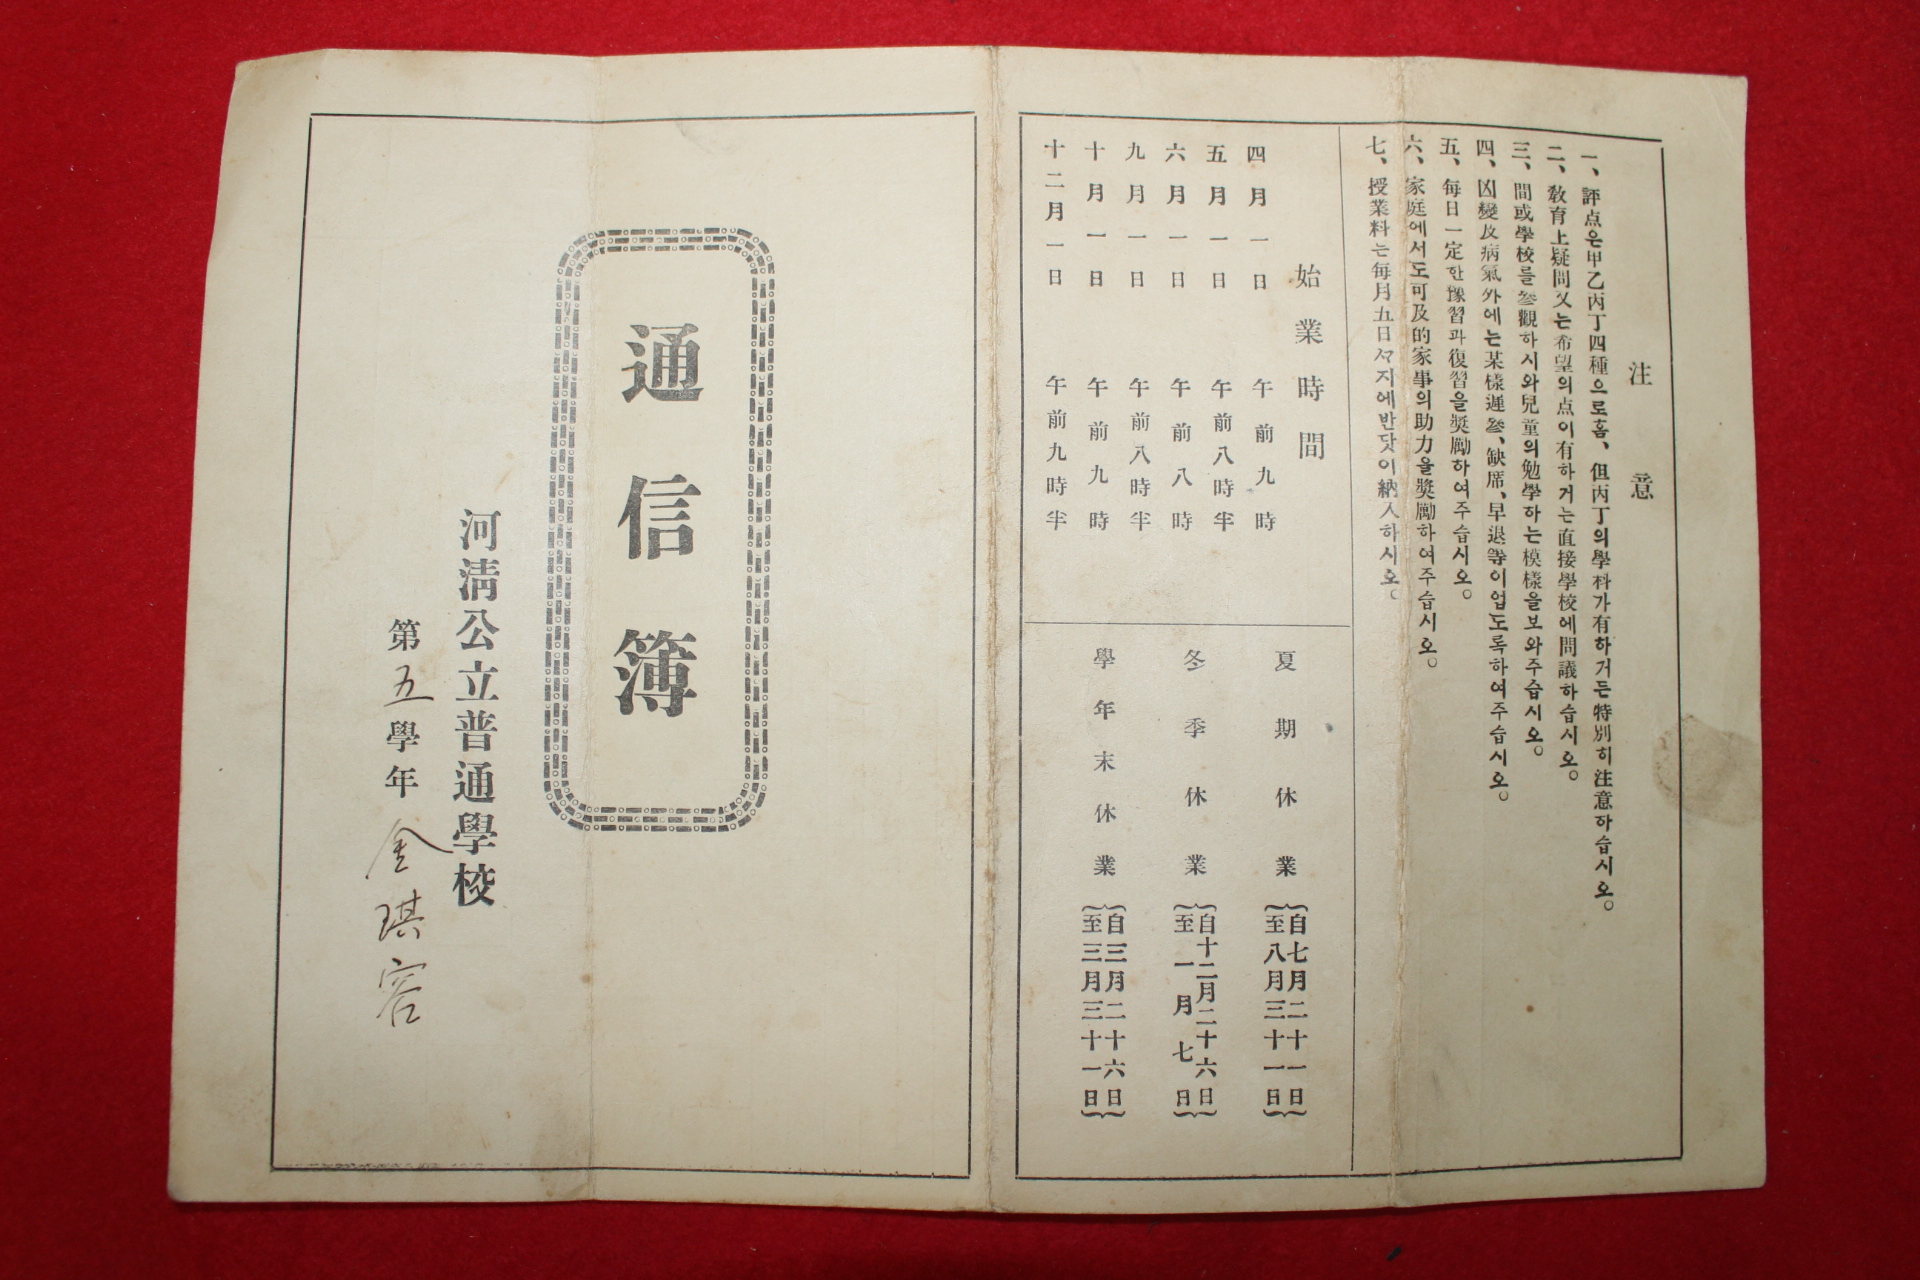 注意
一、評点은甲乙丙丁四種으로홈、但丙丁의學科가有하거든特別히注意하습시오。
二、敎育上疑問又는希望의点이有하거는直接學校에問議하습시오。
三、間或學校를參觀하시와兒童의勉學하는模樣을보와주습시오。
四、凶變及病氣外에는某樣遲參、缺席、早退等이업도록하여주습시오。
五、每日一定한豫習과復習을奬勵하여주습시오。
六、家庭에서도可及的家事의助力을奬勵하여주습시오。
七、授業料는每月五日々지에반닷이納入하시오。
始業時間
四月一日 午前九時
五月一日 午前八時半
六月一日 午前八時
九月一日 午前八時半
十月一日 午前九時
十二月一日 午前九時半
夏期休業 自七月二十一日 至八月三十一日
冬季休業 自十二月二十六日 至一月七日
學年末休業 自三月二十六日 至三月三十一日
通信簿
河淸公立普通學校
第五學年 金琪容